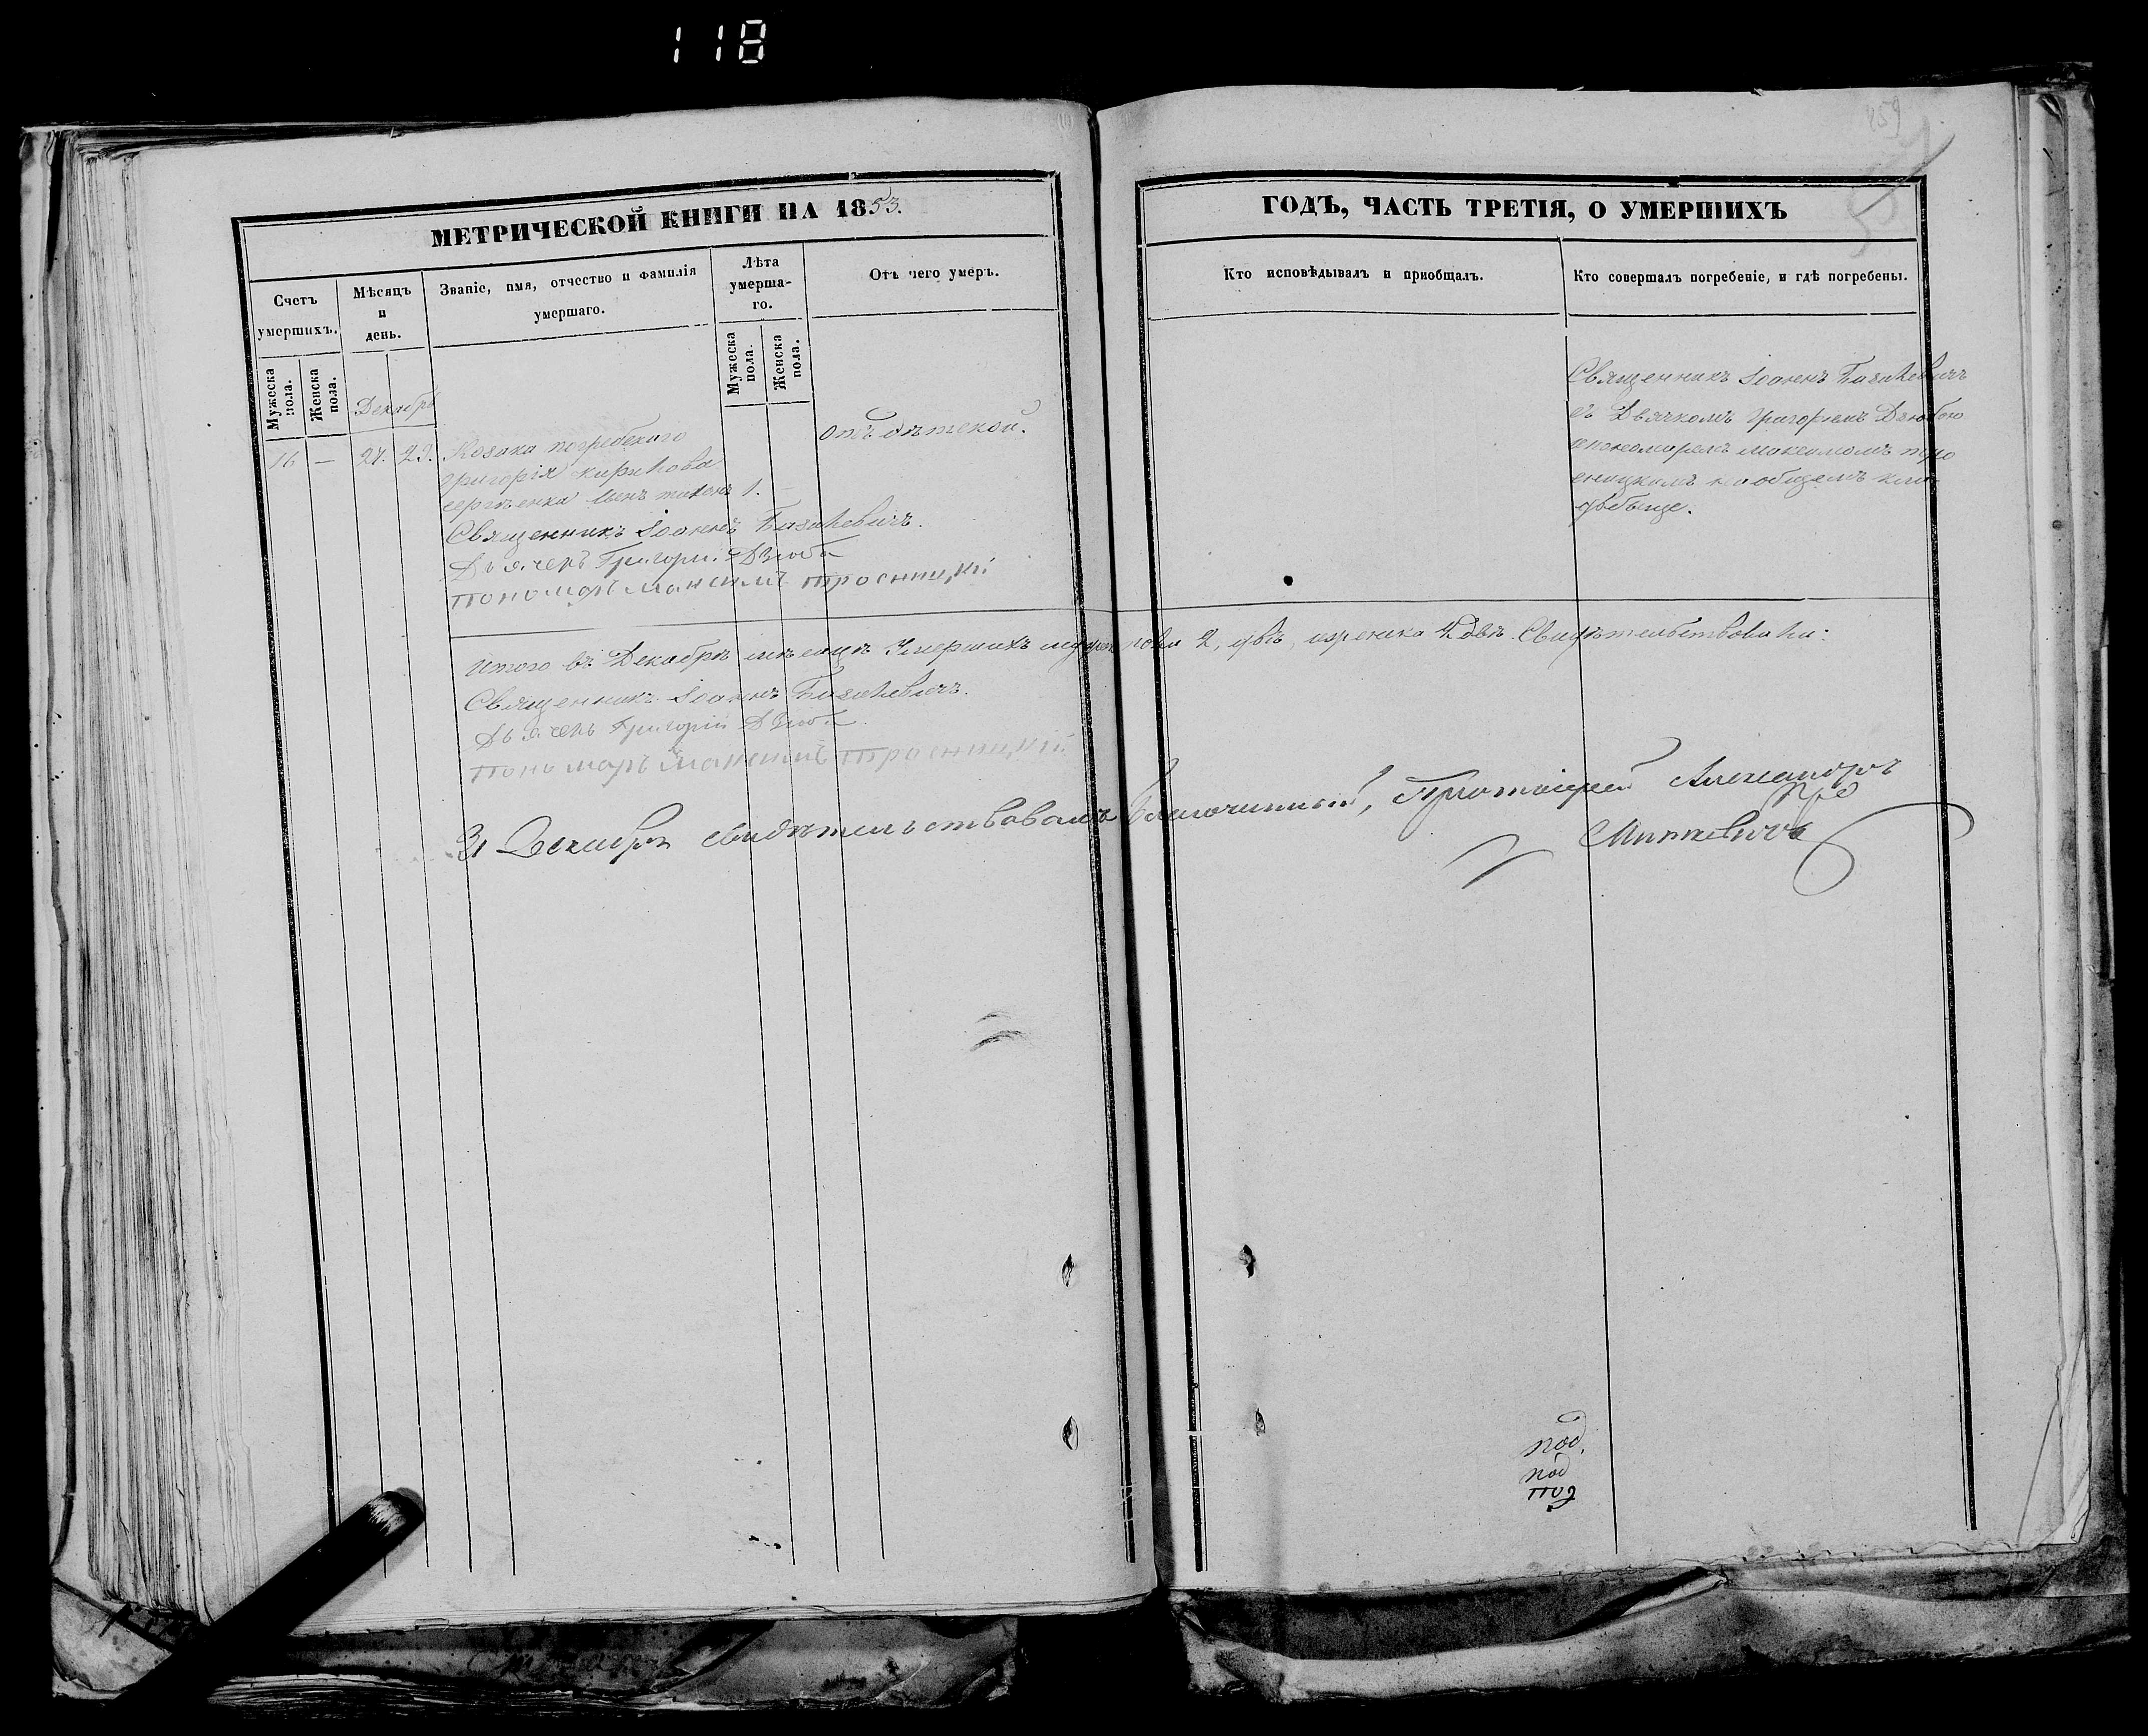 118
459
МЕТРИЧЕСКОЙ КНИГИ НА 1853.
Счетъ умершихъ.
Мужеска пола.
Женска пола.
Мѣсяцъ и день.
Званіе, имя, отчество и фамилія умершаго.
Лѣта умерша-
го.
Мужеска пола.
Женска пола.
Отъ чего умеръ.
Декабрь
16 — 27. 29. Козака
григорія
сынъ тихонъ 1. —
отъ дѣтской.
Священникъ Іоаннъ
Дьячекъ Григорій Дзюба
Пономарь Максимъ Тросницкій
Итого въ Декабрѣ мѣсяцѣ Умершихъ муж. пола 2, два, и женска 2 двѣ. Свидѣтельствовали:
Священникъ Іоаннъ
Дьячекъ Григорій Дзюба
Пономарь Максимъ Тросницкій
31 Декабря свидѣтельствовалъ Благочинный, Протоіерей Александръ
ГОДЪ, ЧАСТЬ ТРЕТІЯ, О УМЕРШИХЪ
Кто исповѣдывалъ и пріобщалъ.
Кто совершалъ погребеніе, и гдѣ погребены.
Священникъ Іоаннъ
съ Дьячкомъ григоріемъ Дзюбою
и пономаремъ максимомъ тро
сницкимъ на общемъ кла
дбыще.
под.
под
под